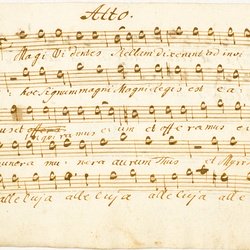 Alto.
Magi Videntes Stellam dixerunt ad invi
hoc signum magni Regis est ea
us et offeramus eum et offeramus
munera munera aurum thus et Myrr
alleluja alleluja alleluja alle